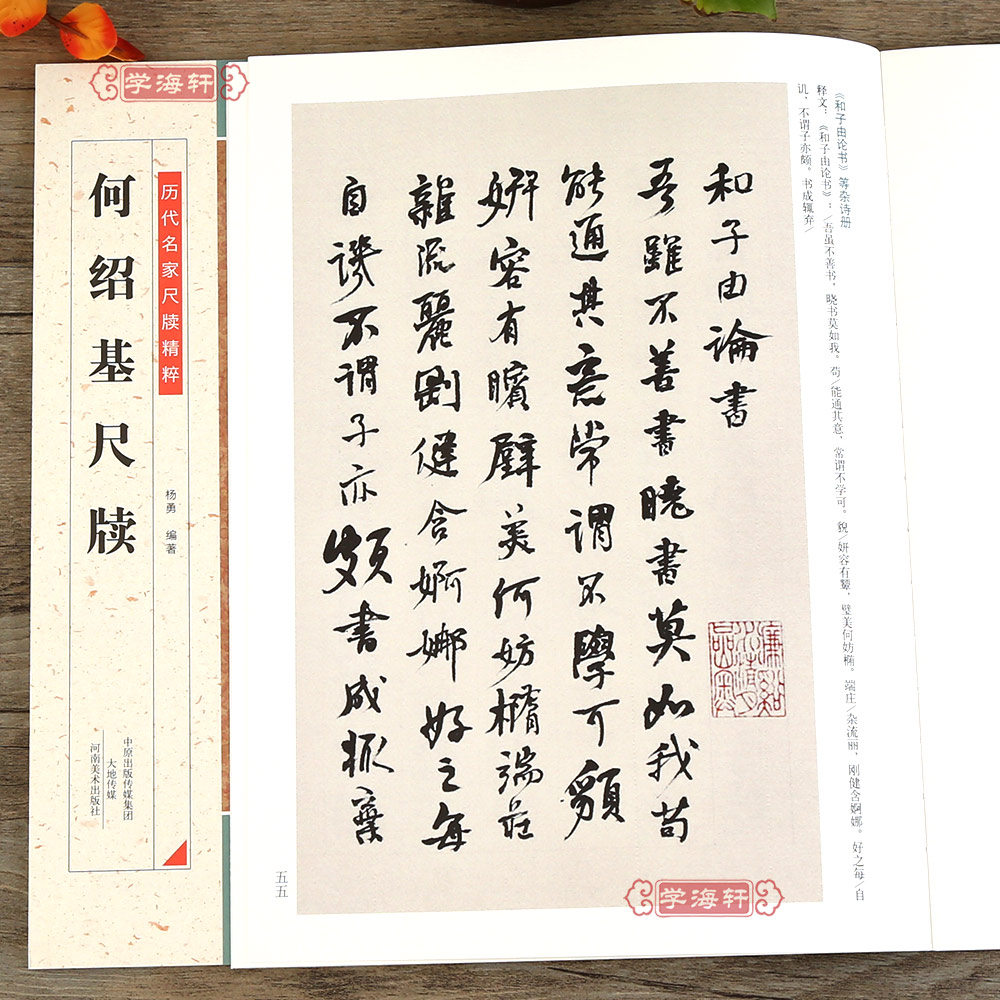 学海轩
历代名家尺牍精粹
何绍基尺牍
杨勇 编著
中原出版传媒集团
大地传媒
河南美术出版社
《和子由论书》等杂诗册
释文：《和子由论书》：/吾虽不善书，晓书莫如我。苟/能通其意，常谓不学可。貌/妍容有颦，璧美何妨椭。端庄/杂流丽，刚健含婀娜。好之每/自
讥，不谓子亦颇。书成辄弃/
和子由論書
吾雖不善書曉書莫如我苟
能通其意常謂不學可貌
妍容有矉璧美何妨橢端莊
雜流麗剛健含婀娜好之每
自譏不謂子亦頗書成輒棄
五五
学海轩